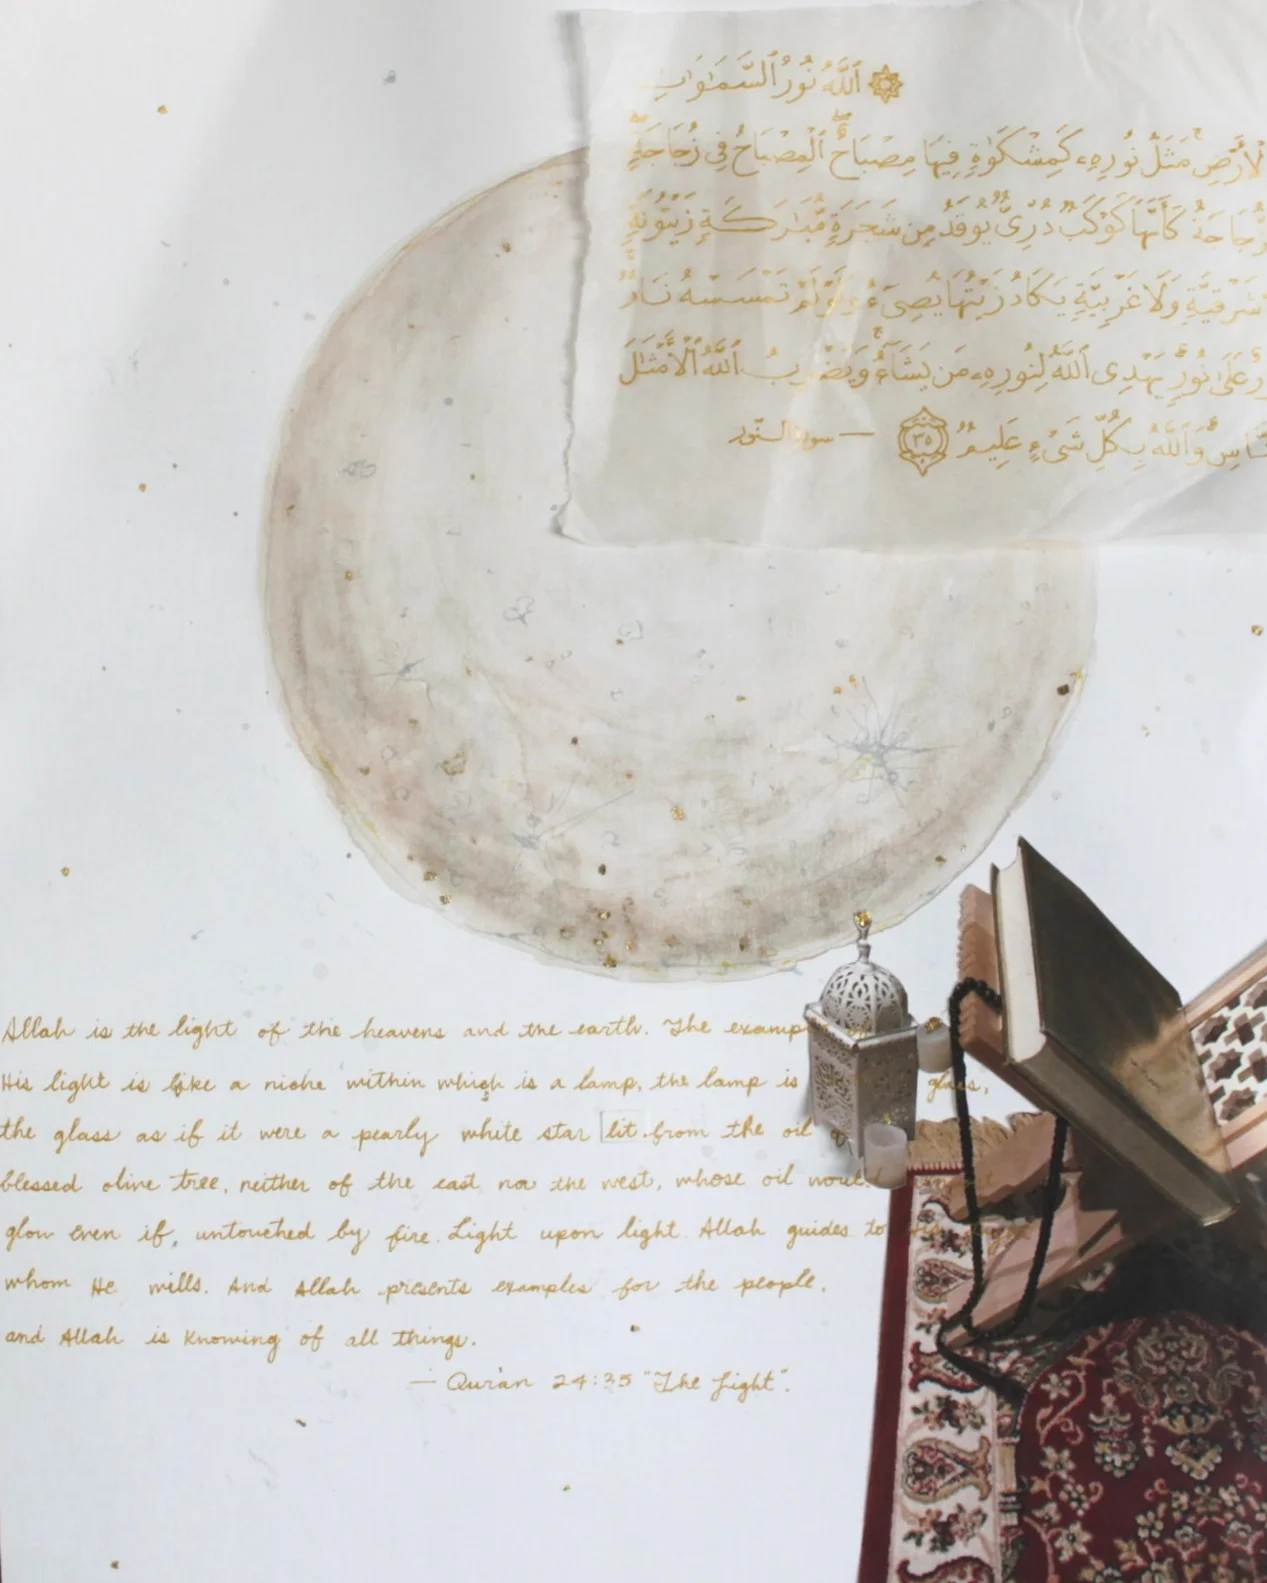 ٱللَّهُ نُورُ ٱلسَّمَـٰوَٰتِ
ٱلْأَرْضِ مَثَلُ نُورِهِۦ كَمِشْكَوٰةٍ فِيهَا مِصْبَاحٌ ۖ ٱلْمِصْبَاحُ فِى زُجَاجَةٍ ۖ
كَأَنَّهَا كَوْكَبٌ دُرِّىٌّ يُوقَدُ مِن شَجَرَةٍ مُّبَـٰرَكَةٍ زَيْتُونَةٍ
شَرْقِيَّةٍ وَلَا غَرْبِيَّةٍ يَكَادُ زَيْتُهَا يُضِىٓءُ وَلَوْ لَمْ تَمْسَسْهُ نَارٌ
عَلَىٰ نُورٍ ۗ يَهْدِى ٱللَّهُ لِنُورِهِۦ مَن يَشَآءُ ۚ وَيَضْرِبُ ٱللَّهُ ٱلْأَمْثَـٰلَ
وَٱللَّهُ بِكُلِّ شَىْءٍ عَلِيمٌ ٣٥ — سورة النور
Allah is the light of the heavens and the earth. The
His light is like a niche within which is a lamp, the lamp is glass,
the glass as if it were a pearly white star lit from the oil
blessed olive tree, neither of the east nor the west, whose oil
glow even if, untouched by fire. Light upon light. Allah guides to
whom He wills. And Allah presents examples for the people,
and Allah is Knowing of all things.
— Qur'an 24:35 "The Light".